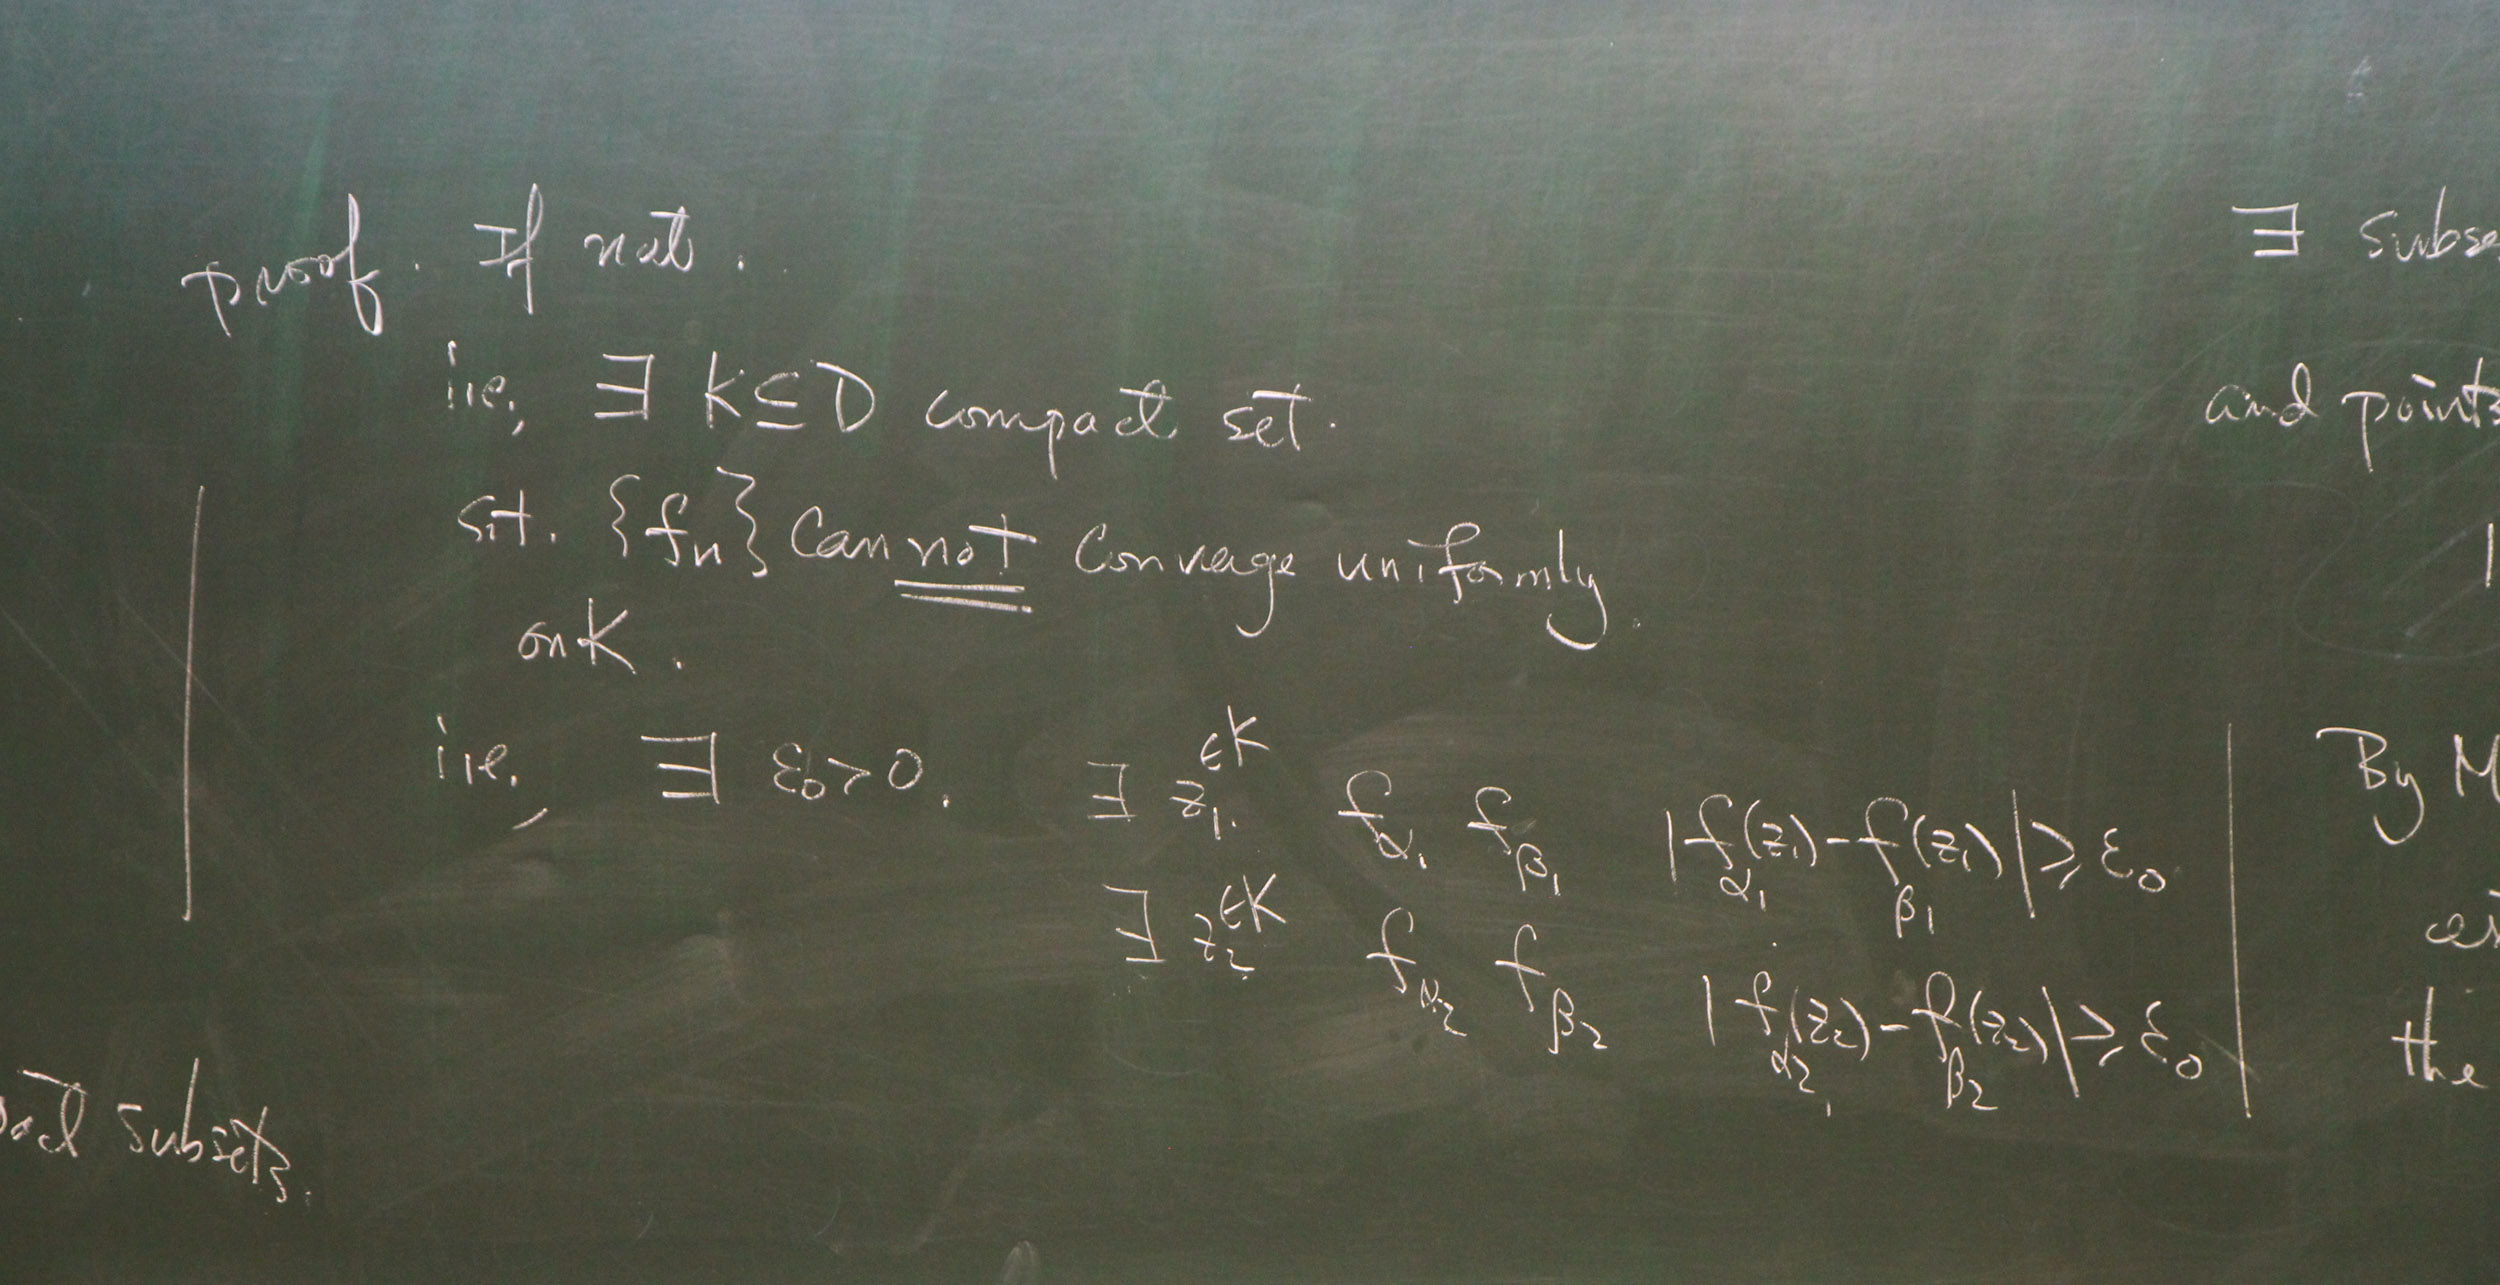 proof. If not.
i.e., ∃ K⊆D compact set.
s.t. {fn} cannot converge uniformly
on K.
i.e., ∃ ε₀>0. ∃ z₁∈K f_α₁ f_β₁ |f_α₁(z₁)-f_β₁(z₁)|≥ε₀
∃ z₂∈K f_α₂ f_β₂ |f_α₂(z₂)-f_β₂(z₂)|≥ε₀
subsets.
∃ subse
and points
By M
the